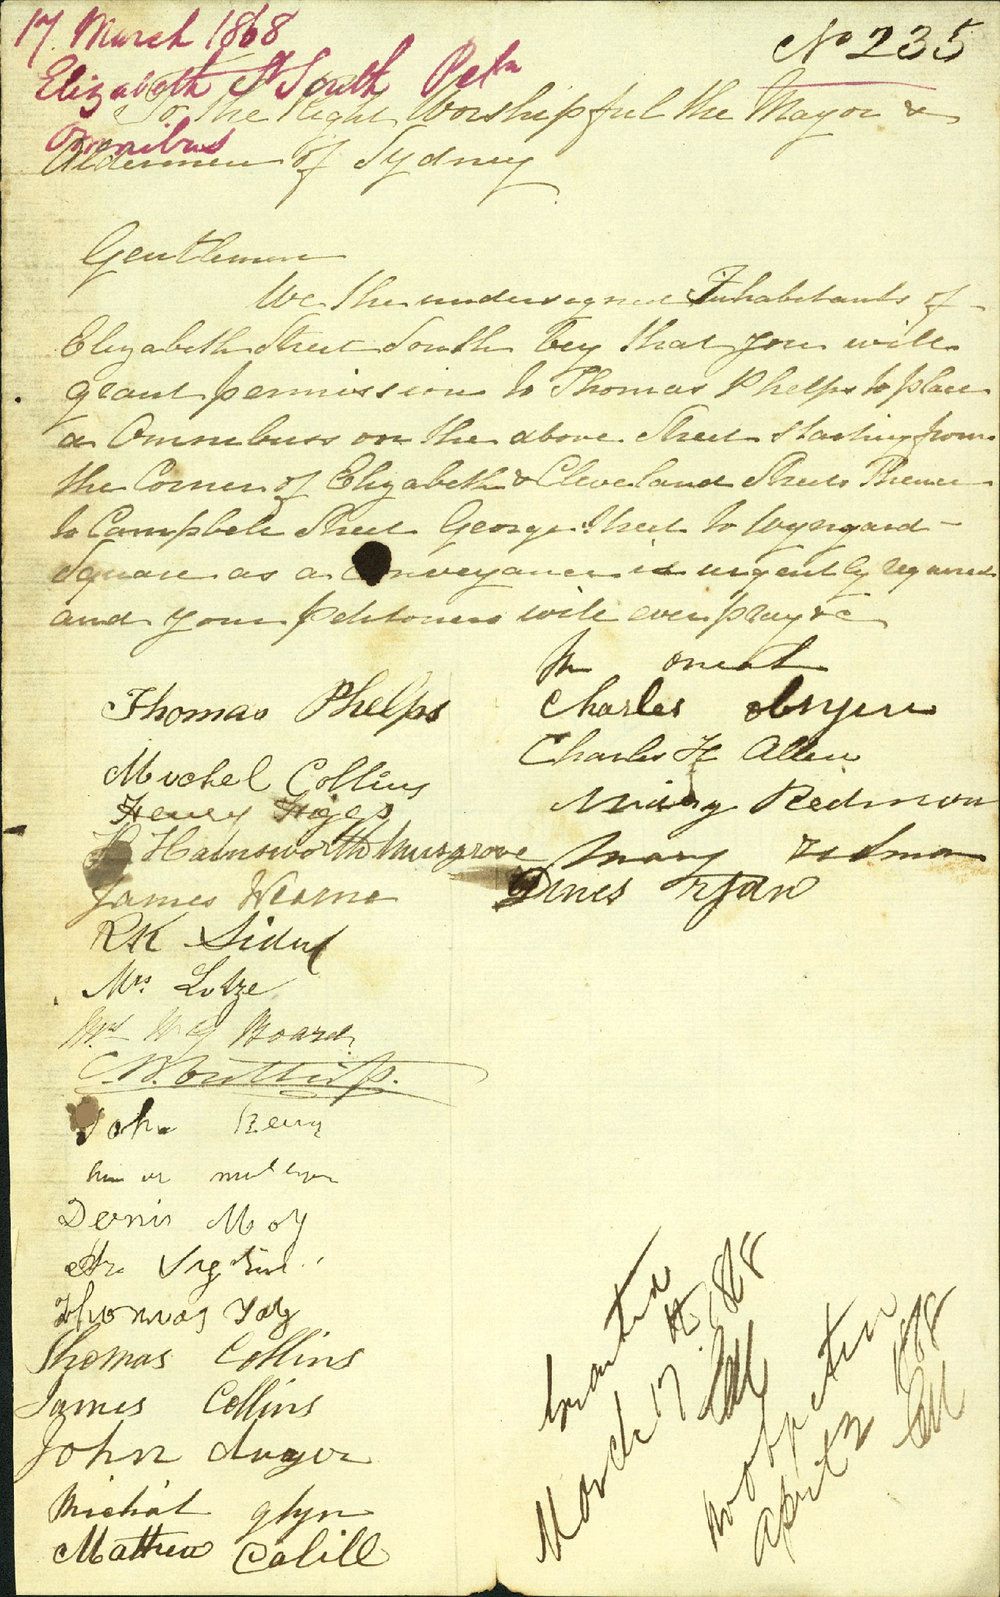 17 March 1868
No 235
Elizabeth St South Petn
Omnibus
To The Right Worshipful the Mayor &
Aldermen of Sydney
Gentlemen
We the undersigned Inhabitants of
Elizabeth Street South beg that you will
grant permission to Thomas Phelps to place
a Omnibuss on the above Street starting from
the Corner of Elizabeth & Cleveland Streets Thence
to Campbell Street George Street to Wynyard
Square as a Conveyance is urgently required
and your Petitioners will ever pray &c
Thomas Phelps
Michel Collins
Henry
Hainsworth Musgrove
James
RK
Mrs Lotze
Mrs Board
John
Denis Moy
Thomas
Thomas Collins
James Collins
John
Michal glyn
Mathew Cahill
Charles obryen
Charles H Allen
Redmon
Mary
Dines ryan
Granted
March 17th 1868
April 2 1868